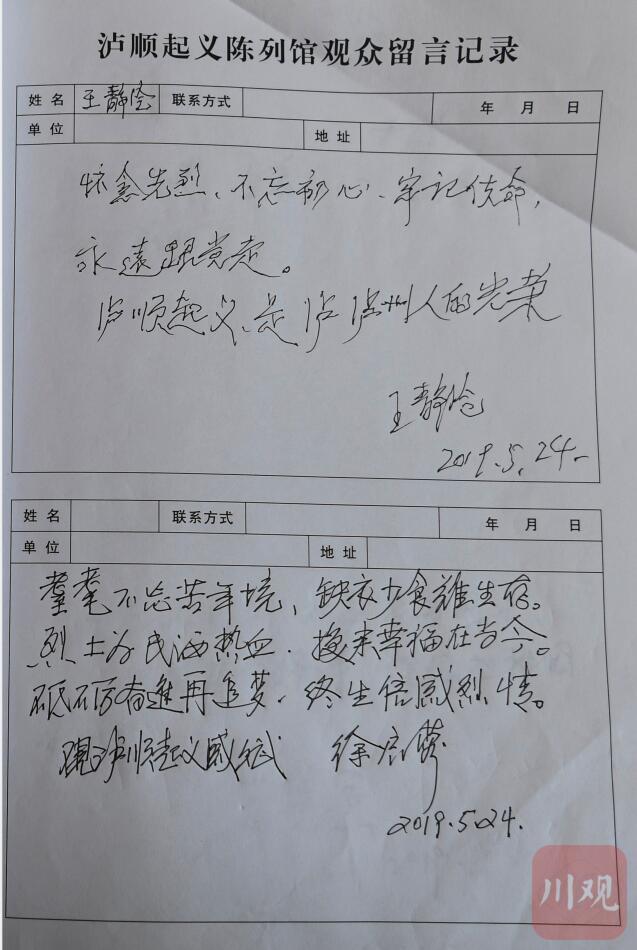 泸顺起义陈列馆观众留言记录
姓名 王静 联系方式 年 月 日
单位 地址
怀念先烈、不忘初心、牢记使命,
永远跟党走。
泸顺起义、是泸泸州人的光荣
王静
2019.5.24.
姓名 联系方式 年 月 日
单位 地址
耄耋不忘苦年境、缺衣少食难生存。
烈士为民洒热血、换来幸福在当今。
砥砺奋进再追梦、终生倍感烈情。
观泸顺起义感赋 徐
2019.5.24.
川观